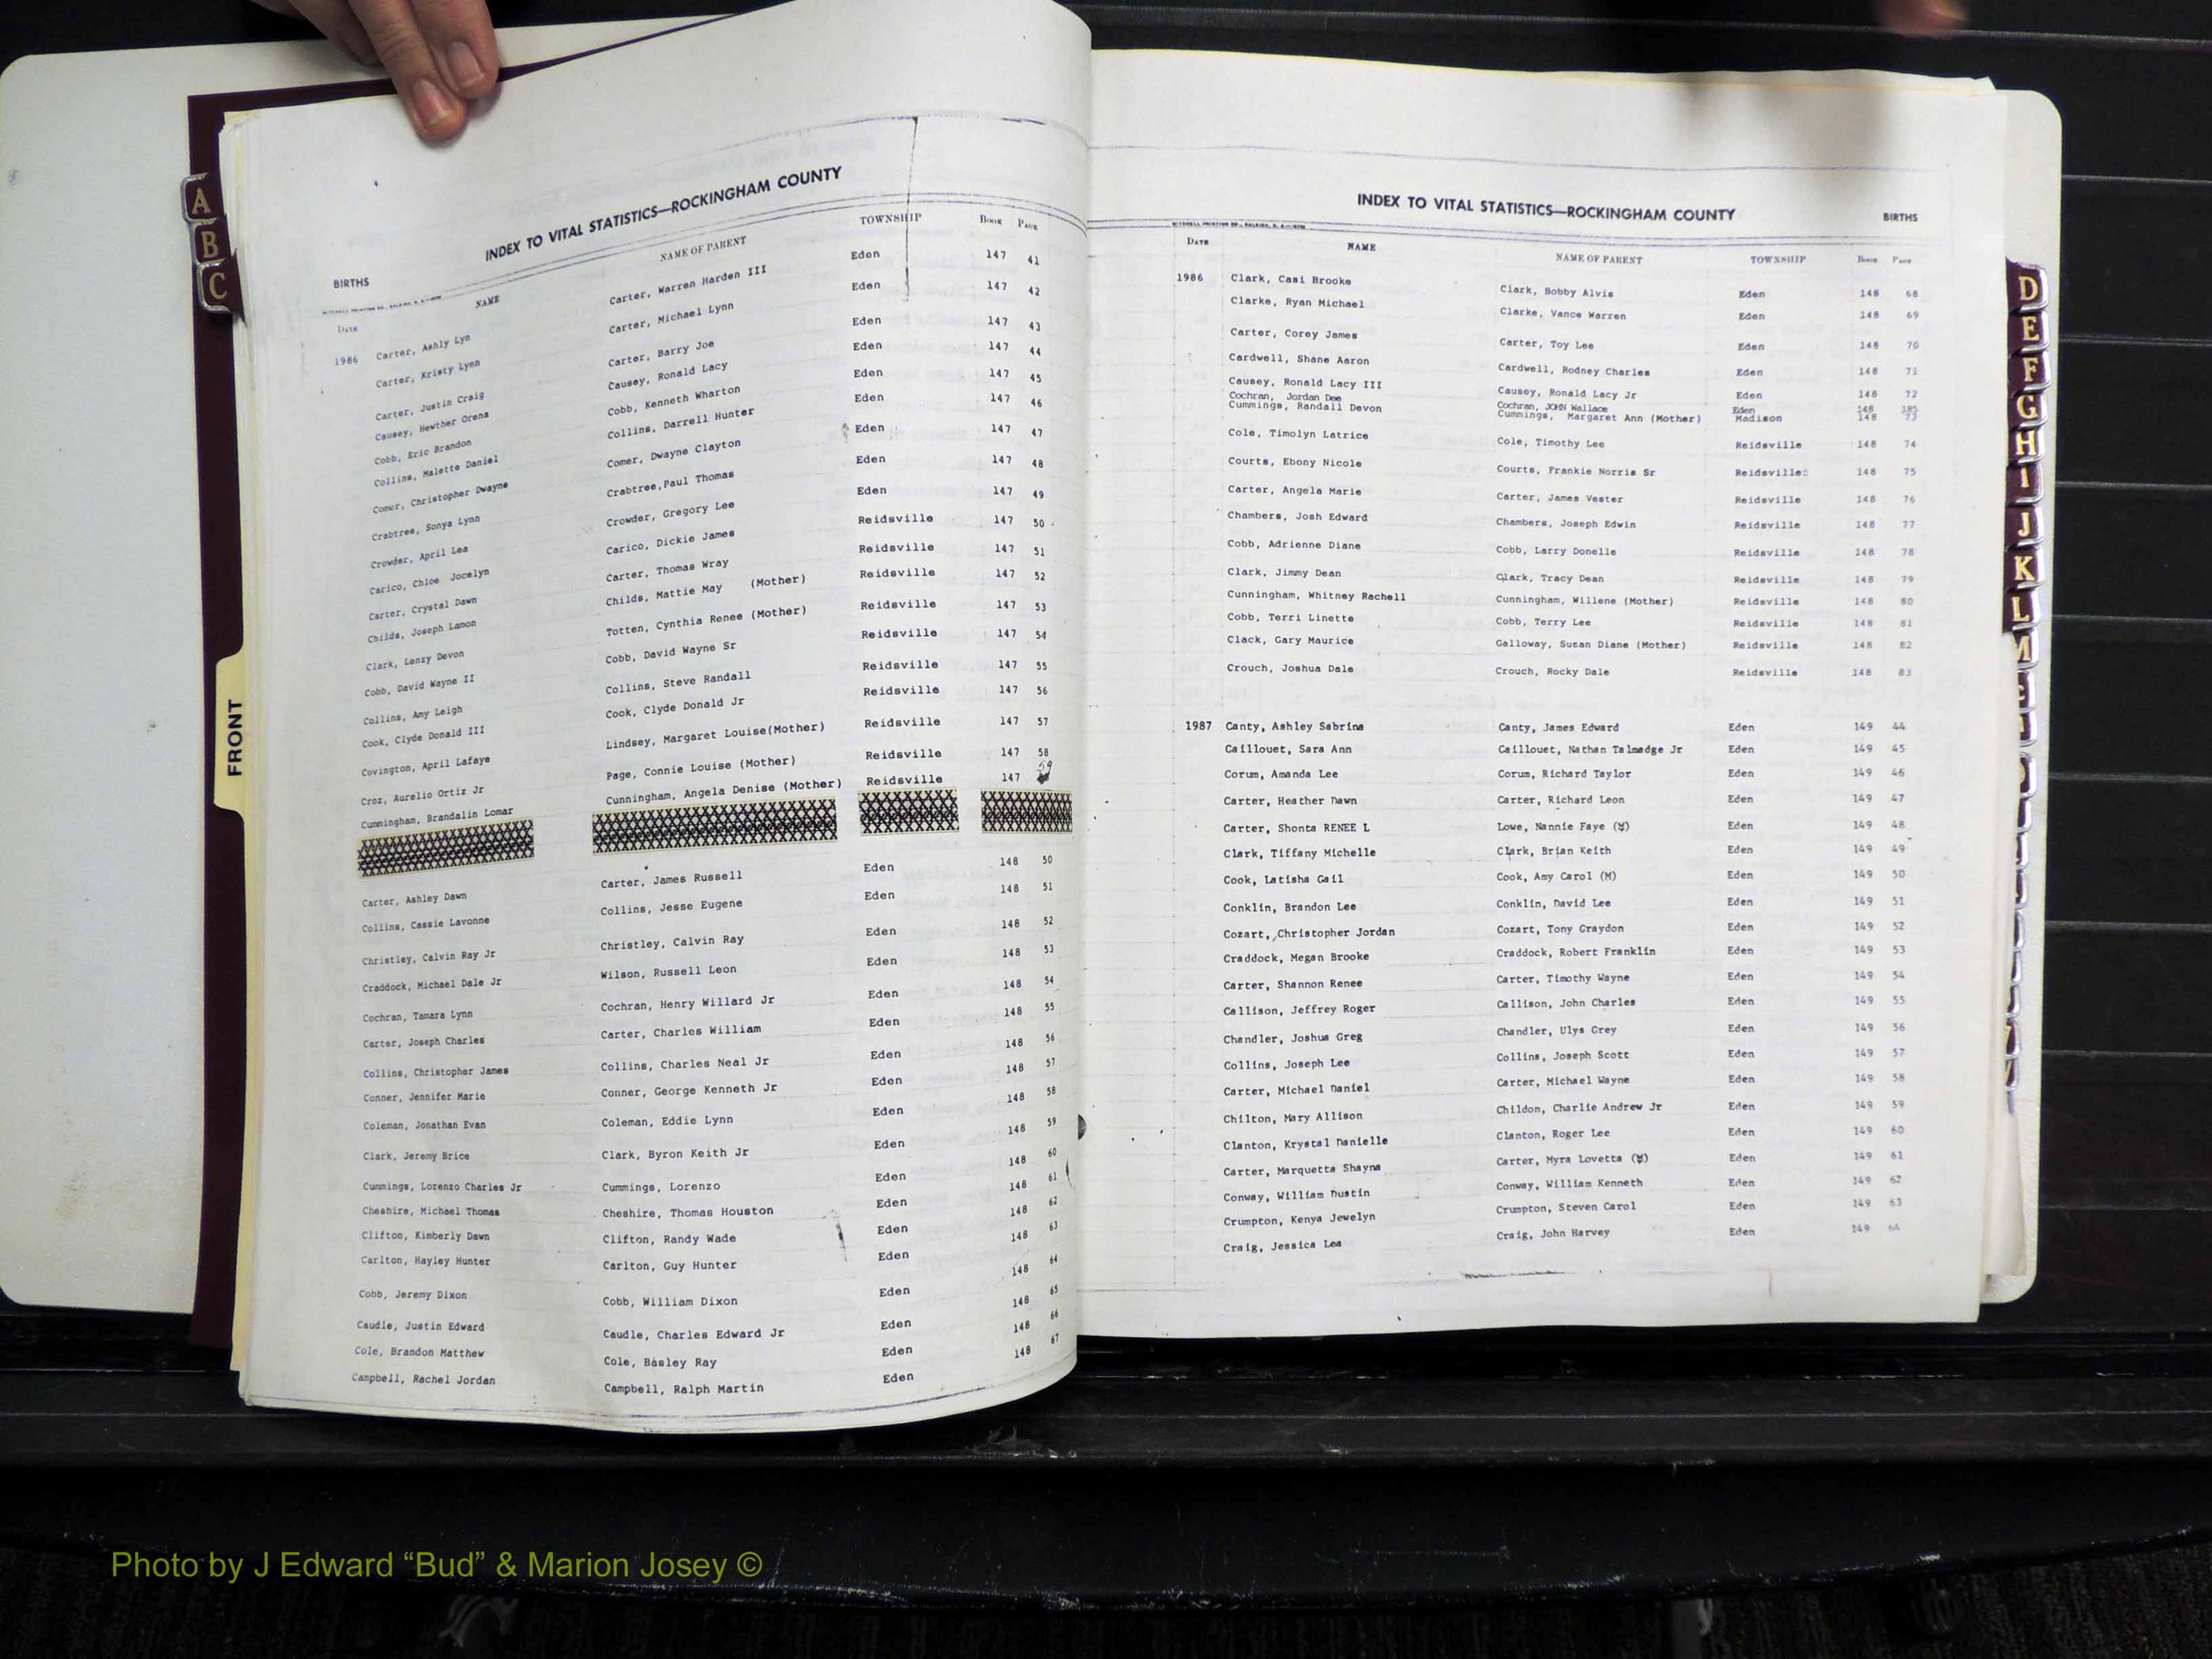 INDEX TO VITAL STATISTICS—ROCKINGHAM COUNTY
BIRTHS
DATE NAME NAME OF PARENT TOWNSHIP BOOK PAGE
1986 Carter, Ashly Lyn Carter, Warren Harden III Eden 147 41
Carter, Kristy Lynn Carter, Michael Lynn Eden 147 42
Carter, Justin Craig Carter, Barry Joe Eden 147 43
Causey, Hewther Orena Causey, Ronald Lacy Eden 147 44
Cobb, Eric Brandon Cobb, Kenneth Wharton Eden 147 45
Collins, Malette Daniel Collins, Darrell Hunter Eden 147 46
Comer, Christopher Dwayne Comer, Dwayne Clayton Eden 147 47
Crabtree, Sonya Lynn Crabtree,Paul Thomas Eden 147 48
Crowder, April Lea Crowder, Gregory Lee Eden 147 49
Carico, Chloe Jocelyn Carico, Dickie James Reidsville 147 50
Carter, Crystal Dawn Carter, Thomas Wray Reidsville 147 51
Childs, Joseph Lamon Childs, Mattie May (Mother) Reidsville 147 52
Clark, Lenzy Devon Totten, Cynthia Renee (Mother) Reidsville 147 53
Cobb, David Wayne II Cobb, David Wayne Sr Reidsville 147 54
Collins, Amy Leigh Collins, Steve Randall Reidsville 147 55
Cook, Clyde Donald III Cook, Clyde Donald Jr Reidsville 147 56
Covington, April Lafaye Lindsey, Margaret Louise(Mother) Reidsville 147 57
Croz, Aurelio Ortiz Jr Page, Connie Louise (Mother) Reidsville 147 58
Cummingham, Brandalin Lomar Cunningham, Angela Denise (Mother) Reidsville 147 59
Carter, Ashley Dawn Carter, James Russell Eden 148 50
Collins, Cassie Lavonne Collins, Jesse Eugene Eden 148 51
Christley, Calvin Ray Jr Christley, Calvin Ray Eden 148 52
Craddock, Michael Dale Jr Wilson, Russell Leon Eden 148 53
Cochran, Tamara Lynn Cochran, Henry Willard Jr Eden 148 54
Carter, Joseph Charles Carter, Charles William Eden 148 55
Collins, Christopher James Collins, Charles Neal Jr Eden 148 56
Conner, Jennifer Marie Conner, George Kenneth Jr Eden 148 57
Coleman, Jonathan Evan Coleman, Eddie Lynn Eden 148 58
Clark, Jeremy Brice Clark, Byron Keith Jr Eden 148 59
Cummings, Lorenzo Charles Jr Cummings, Lorenzo Eden 148 60
Cheshire, Michael Thomas Cheshire, Thomas Houston Eden 148 61
Clifton, Kimberly Dawn Clifton, Randy Wade Eden 148 62
Carlton, Hayley Hunter Carlton, Guy Hunter Eden 148 63
Cobb, Jeremy Dixon Cobb, William Dixon Eden 148 64
Caudle, Justin Edward Caudle, Charles Edward Jr Eden 148 65
Cole, Brandon Matthew Cole, Basley Ray Eden 148 66
Campbell, Rachel Jordan Campbell, Ralph Martin Eden 148 67
A
B
C
FRONT
INDEX TO VITAL STATISTICS—ROCKINGHAM COUNTY
BIRTHS
DATE NAME NAME OF PARENT TOWNSHIP BOOK PAGE
1986 Clark, Casi Brooke Clark, Bobby Alvis Eden 148 68
Clarke, Ryan Michael Clarke, Vance Warren Eden 148 69
Carter, Corey James Carter, Toy Lee Eden 148 70
Cardwell, Shane Aaron Cardwell, Rodney Charles Eden 148 71
Causey, Ronald Lacy III Causey, Ronald Lacy Jr Eden 148 72
Cochran, Jordan Dee Cochran, JOHN Wallace Eden 148 185
Cummings, Randall Devon Cummings, Margaret Ann (Mother) Madison 148 73
Cole, Timolyn Latrice Cole, Timothy Lee Reidsville 148 74
Courts, Ebony Nicole Courts, Frankie Norris Sr Reidsville 148 75
Carter, Angela Marie Carter, James Vester Reidsville 148 76
Chambers, Josh Edward Chambers, Joseph Edwin Reidsville 148 77
Cobb, Adrienne Diane Cobb, Larry Donelle Reidsville 148 78
Clark, Jimmy Dean Clark, Tracy Dean Reidsville 148 79
Cunningham, Whitney Rachell Cunningham, Willene (Mother) Reidsville 148 80
Cobb, Terri Linette Cobb, Terry Lee Reidsville 148 81
Clack, Gary Maurice Galloway, Susan Diane (Mother) Reidsville 148 82
Crouch, Joshua Dale Crouch, Rocky Dale Reidsville 148 83
1987 Canty, Ashley Sabrina Canty, James Edward Eden 149 44
Caillouet, Sara Ann Caillouet, Nathan Talmadge Jr Eden 149 45
Corum, Amanda Lee Corum, Richard Taylor Eden 149 46
Carter, Heather Dawn Carter, Richard Leon Eden 149 47
Carter, Shonta RENEE L Lowe, Nannie Faye (M) Eden 149 48
Clark, Tiffany Michelle Clark, Brian Keith Eden 149 49
Cook, Latisha Gail Cook, Amy Carol (M) Eden 149 50
Conklin, Brandon Lee Conklin, David Lee Eden 149 51
Cozart, Christopher Jordan Cozart, Tony Graydon Eden 149 52
Craddock, Megan Brooke Craddock, Robert Franklin Eden 149 53
Carter, Shannon Renee Carter, Timothy Wayne Eden 149 54
Callison, Jeffrey Roger Callison, John Charles Eden 149 55
Chandler, Joshua Greg Chandler, Ulys Grey Eden 149 56
Collins, Joseph Lee Collins, Joseph Scott Eden 149 57
Carter, Michael Daniel Carter, Michael Wayne Eden 149 58
Chilton, Mary Allison Childon, Charlie Andrew Jr Eden 149 59
Clanton, Krystal Danielle Clanton, Roger Lee Eden 149 60
Carter, Marquetta Shayna Carter, Myra Lovetta (M) Eden 149 61
Conway, William Dustin Conway, William Kenneth Eden 149 62
Crumpton, Kenya Jewelyn Crumpton, Steven Carol Eden 149 63
Craig, Jessica Lea Craig, John Harvey Eden 149 64
D
E
F
G
H
I
J
K
L
M
Photo by J Edward “Bud” & Marion Josey ©